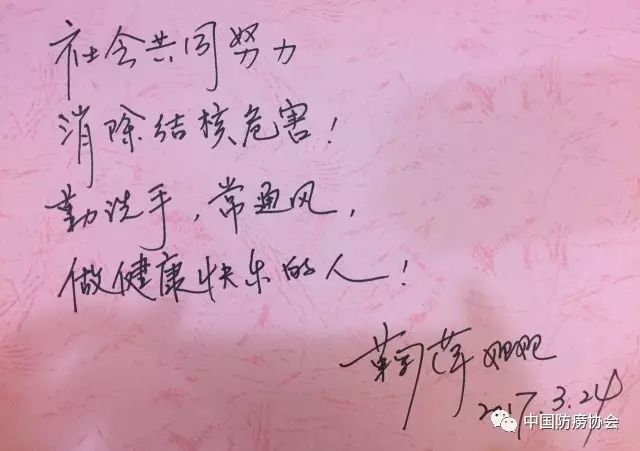 社会共同努力
消除结核危害！
勤洗手，常通风，
做健康快乐的人！
鞠萍姐姐
2017.3.24
中国防痨协会